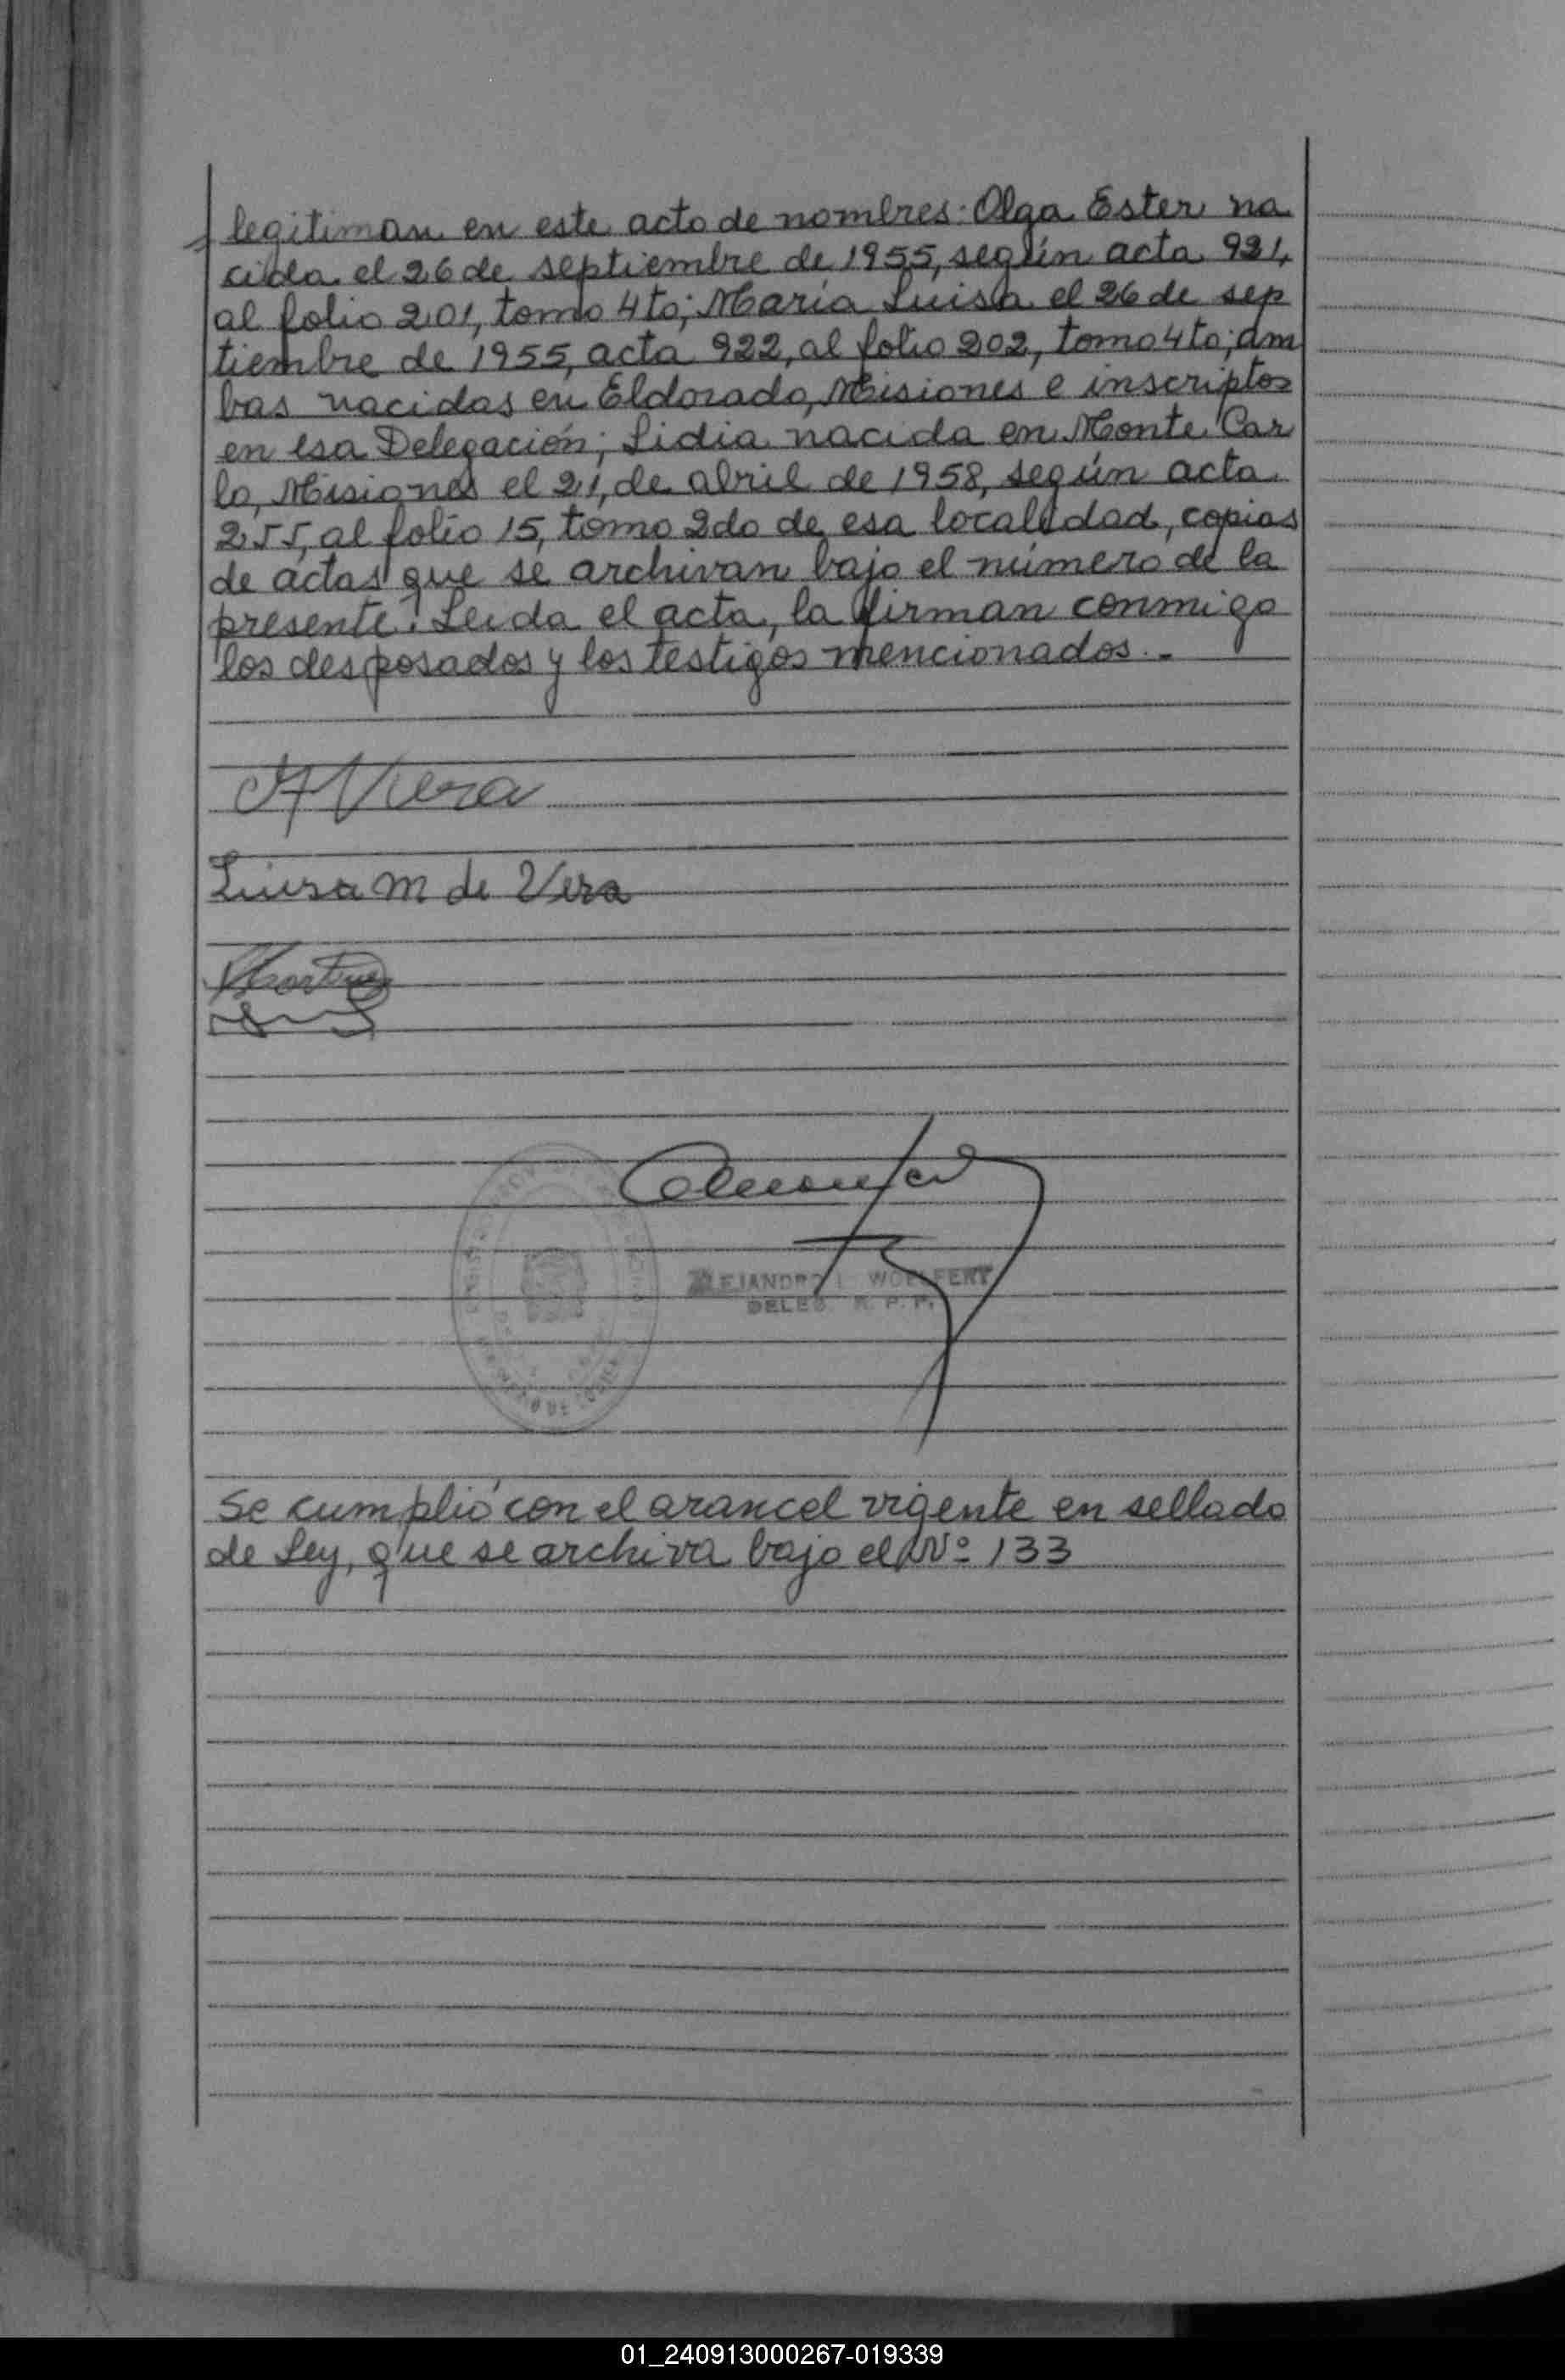 legitiman en este acto de nombres: Olga Ester na
cida el 26 de septiembre de 1955, según acta 921,
al folio 201, tomo 4to; María Luisa el 26 de sep
tiembre de 1955, acta 922, al folio 202, tomo 4to; am
bas nacidas en Eldorado, Misiones e inscriptos
en esa Delegación; Lidia nacida en Monte Car
lo, Misiones el 21, de abril de 1958, según acta
255, al folio 15, tomo 2do de esa localidad, copias
de actas que se archivan bajo el número de la
presente. Leida el acta, la firman conmigo
los desposados y los testigos mencionados.-
Vera
Luisa M de Vera
ALEJANDRO L. WOELFERT
DELEG. R. P. P.
Se cumplió con el arancel vigente en sellado
de Ley, que se archiva bajo el Nº 133
01_240913000267-019339